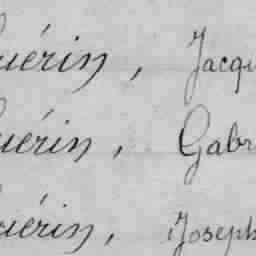 uérin, Jacqu
uérin, Gabr
uérin, Joseph